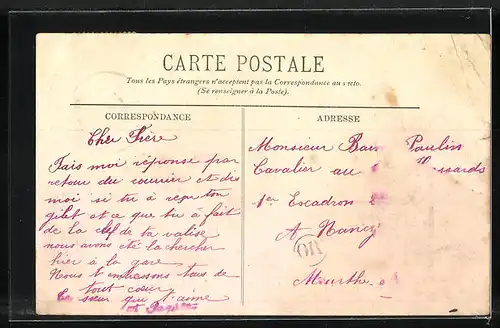 CARTE POSTALE
Tous les Pays étrangers n'acceptent pas la Correspondance au recto.
(Se renseigner à la Poste).
CORRESPONDANCE
Cher Frère
Fais moi réponse par
retour du courrier et dis
moi si tu à reçu ton
gilet et ce que tu à fait
de la clef de ta valise
nous avons eté la chercher
hier à la gare
Nous t'embrassons tous de
tout cœur
Ta sœur qui t'aime
ADRESSE
Monsieur Paulin
Cavalier au Hussards
1er Escadron
A Nancy
OR
Meurthe